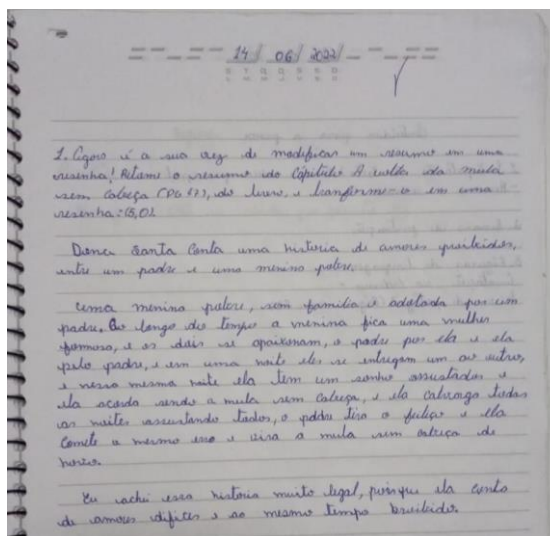 14/ 06/ 2022/
1. Agora é a sua vez de modificar um resumo em uma
resenha! Retome o resumo do Cápitulo A volta da mula
sem cabeça (PG 47), do livro, e transforme-o em uma
resenha: (5,0).
Danca Santa Conta uma historia de amores proibidos,
entre um padre e uma menina pobre.
Uma menina pobre, sem familia é adotada por um
padre. Ao longo do tempo a menina fica uma mulher
formosa, e os dois se apaixonam, o padre por ela e ela
pelo padre, e em uma noite eles se entregam um ao outro,
e nessa mesma noite ela tem um sonho assustador e
ela acorda sendo a mula sem cabeça, e ela cavalga todas
as noites assustando todos, o padre tira o feitiço e ela
Comete o mesmo erro e vira a mula sem cabeça de
novo.
Eu achei essa historia muito legal, porque ela conta
de amores dificies e ao mesmo tempo